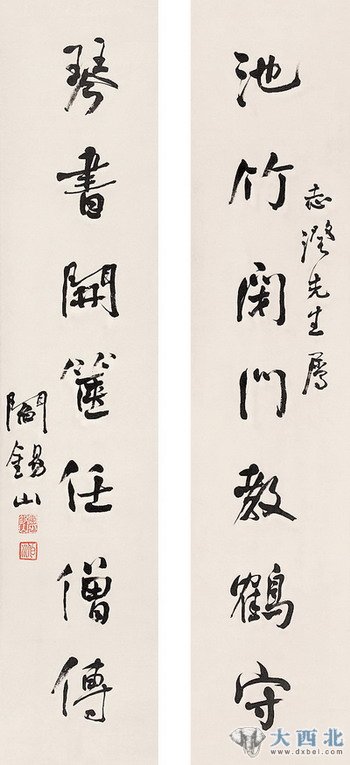 志澄先生屬
池竹閉門教鶴守
琴書開篋任僧傳
閻錫山
大西北
www.dxbei.com